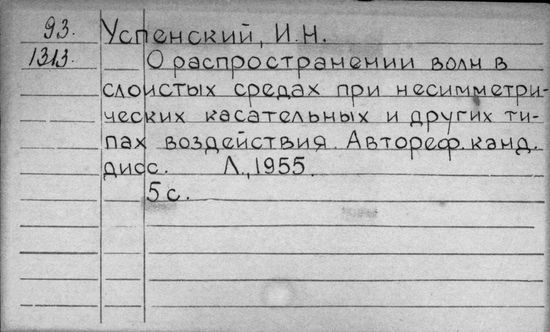 93.
1313.
Успенский, И.Н.
О распространении волн в
слоистых средах при несимметри-
ческих касательных и других ти-
пах воздействия. Автореф. канд.
дисс. Л., 1955.
5 с.